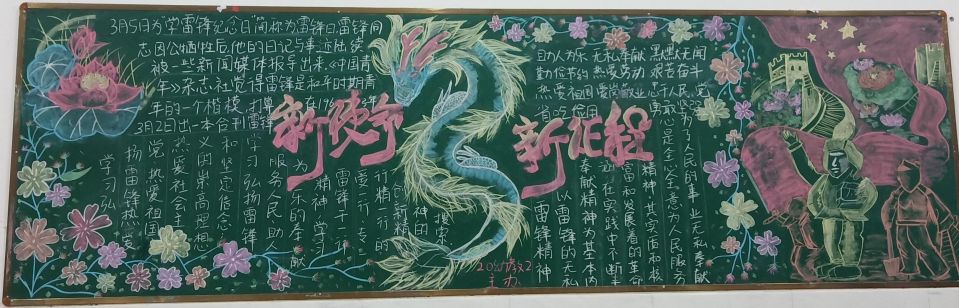 3月5日为"学雷锋纪念日"简称为雷锋日雷锋同
志因公牺牲后他的日记与事迹陆续
被一些新闻媒体报导出来《中国青
年》杂志社觉得雷锋是和平时期青
年的一个楷模
3月2日出一本合刊雷锋
新使命
学习弘
扬雷锋热爱
党热爱祖国
热爱社会主
义的崇高理想
和坚定信念
学习弘扬雷锋
服务人民助人
为乐的奉献
精神学习
雷锋干一行
爱一行专一
行精一行的
创新精
神的
搜索
助人为乐无私奉献默默无闻
勤俭节约热爱劳动艰苦奋斗
热爱祖国爱党敬业
新征程
雷锋精神
以雷锋的无私
奉献精神为基本内
涵在实践中不断丰
富和发展着的革命
精神其实质和核
心是全心全意为人民服务
为了人民的事业无私奉献
主办